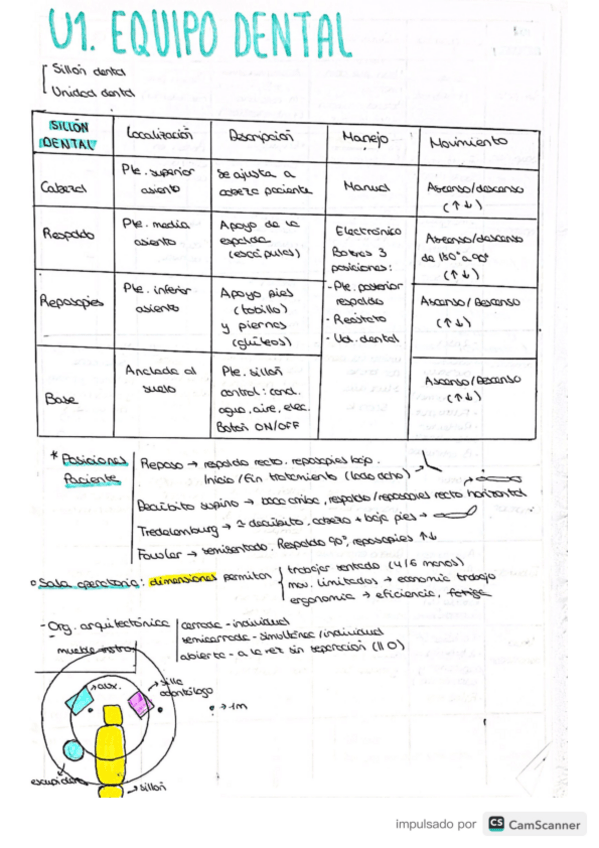 U1. EQUIPO DENTAL
Sillón dental
Unidad dental
SILLÓN DENTAL
Localización
Descripción
Manejo
Movimiento
Cabezal
Pte. superior
asiento
Se ajusta a
cabeza paciente
Manual
Ascenso/descenso
(↑↓)
Respaldo
Pte. media
asiento
Apoyo de la
espalda
(escápulas)
Electrónico
Botones 3
posiciones:
- Pte. posterior
respaldo
- Reóstato
- Ud. dental
Ascenso/descenso
de 180° a 90°
(↑↓)
Reposapies
Pte. inferior
asiento
Apoyo pies
(tobillo)
y piernas
(glúteos)
Ascenso/Descenso
(↑↓)
Base
Anclada al
suelo
Pte. sillón
control: cond.
agua, aire, elec.
Botón ON/OFF
Ascenso/Descenso
(↑↓)
* Posiciones
Paciente
Reposo → respaldo recto. reposapies bajo.
Inicio/Fin tratamiento (lado ocho) →
Decúbito supino → boca arriba, respaldo/reposapies recto horizontal
Tredelemburg → decúbito. cabeza + baja pies →
Fowler → semisentado. Respaldo 90°, reposapies ↑↓
Sala operatoria: dimensiones permitan
trabajar sentado (4/6 manos)
mov. limitados → economía trabajo
ergonomía → eficiencia, fatiga
- Org. arquitectónica
cerrada - individual
semicerrada - simultánea/individual
abierta - a la vez sin separación (II O)
mueble instru
→ aux.
→ silla
odontólogo
→ 1m
escupidera
→ sillón
impulsado por CS CamScanner